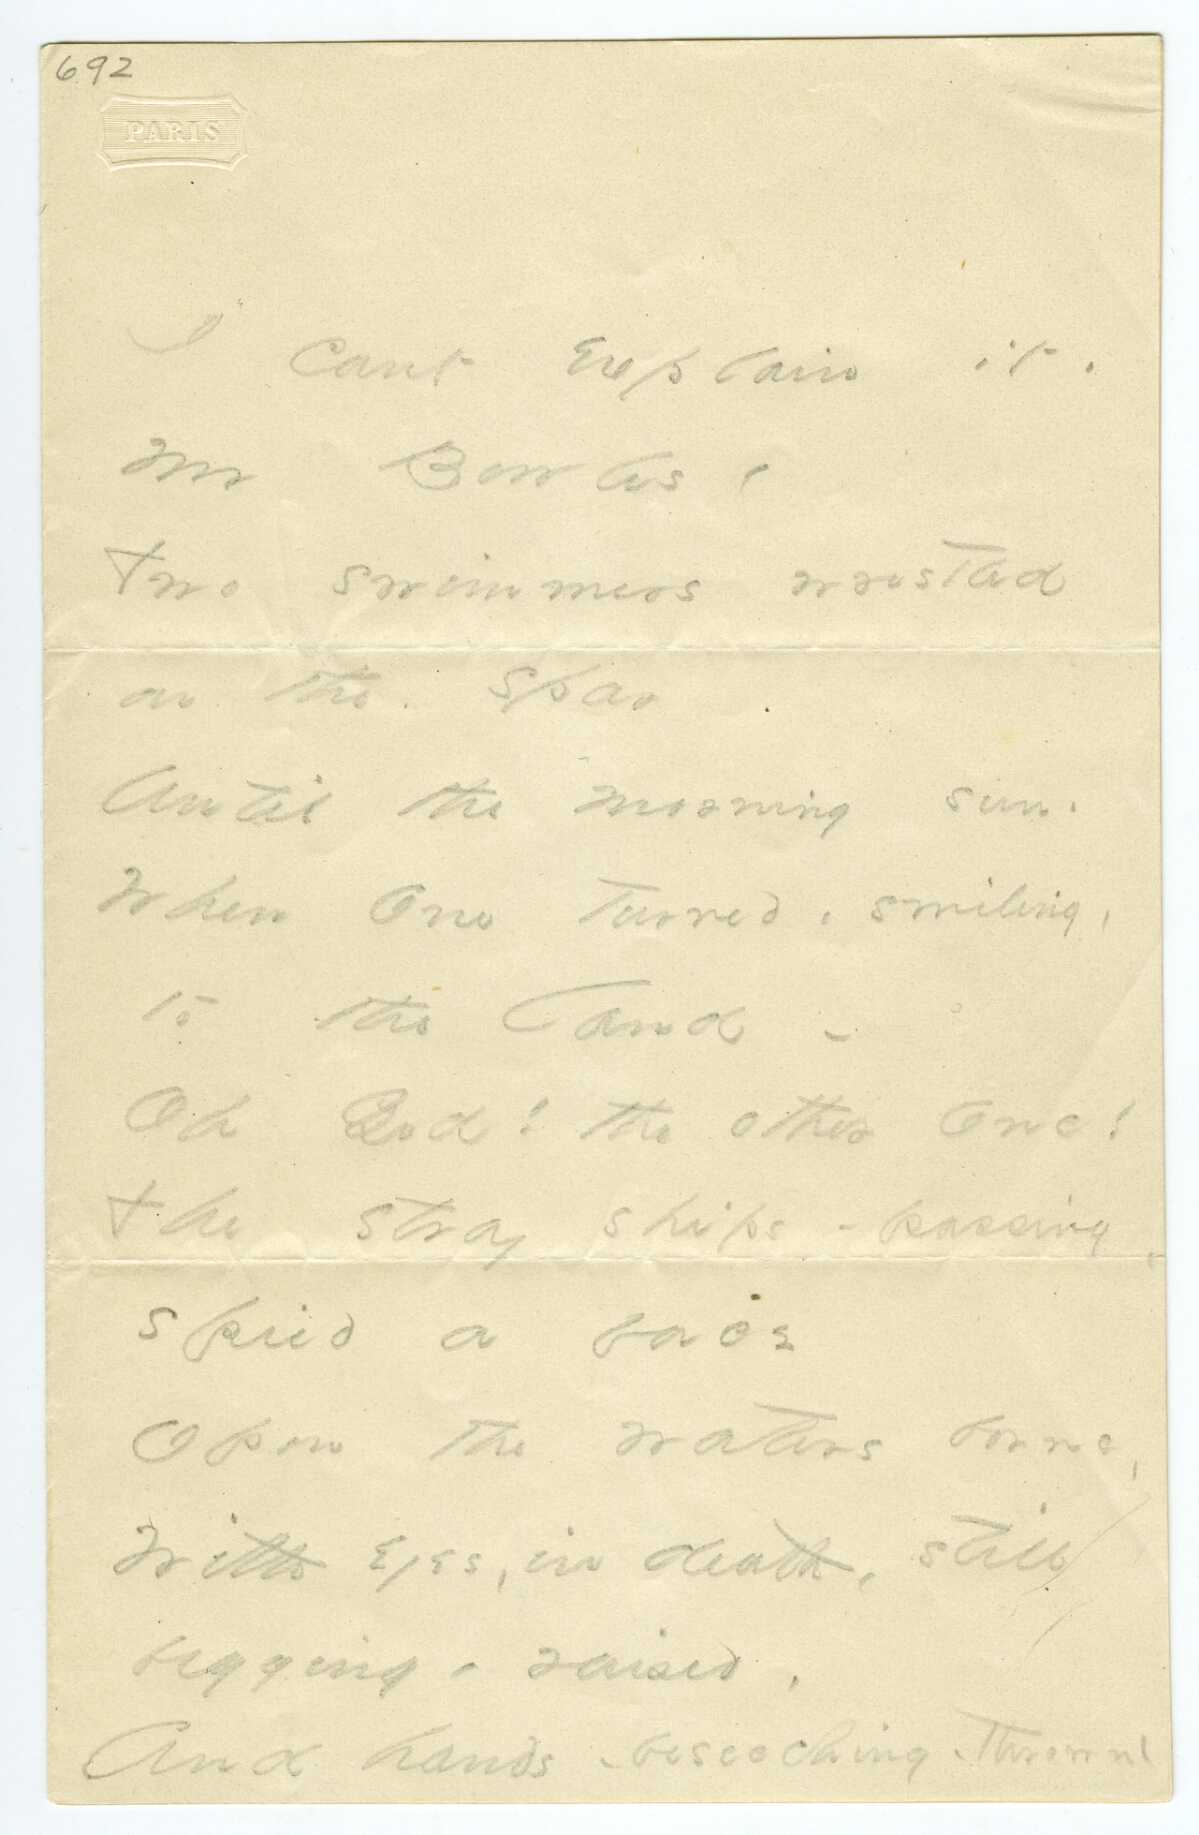 692
PARIS
I cant explain it,
Mr Bowles.
Two swimmers wrestled
on the spar
Until the morning sun,
When One turned, smiling,
to the land -
Oh God! the other One!
The stray ships - passing,
spied a face
Opon the waters borne,
With eyes, in death, still
begging, raised,
And hands - beseeching - thrown!